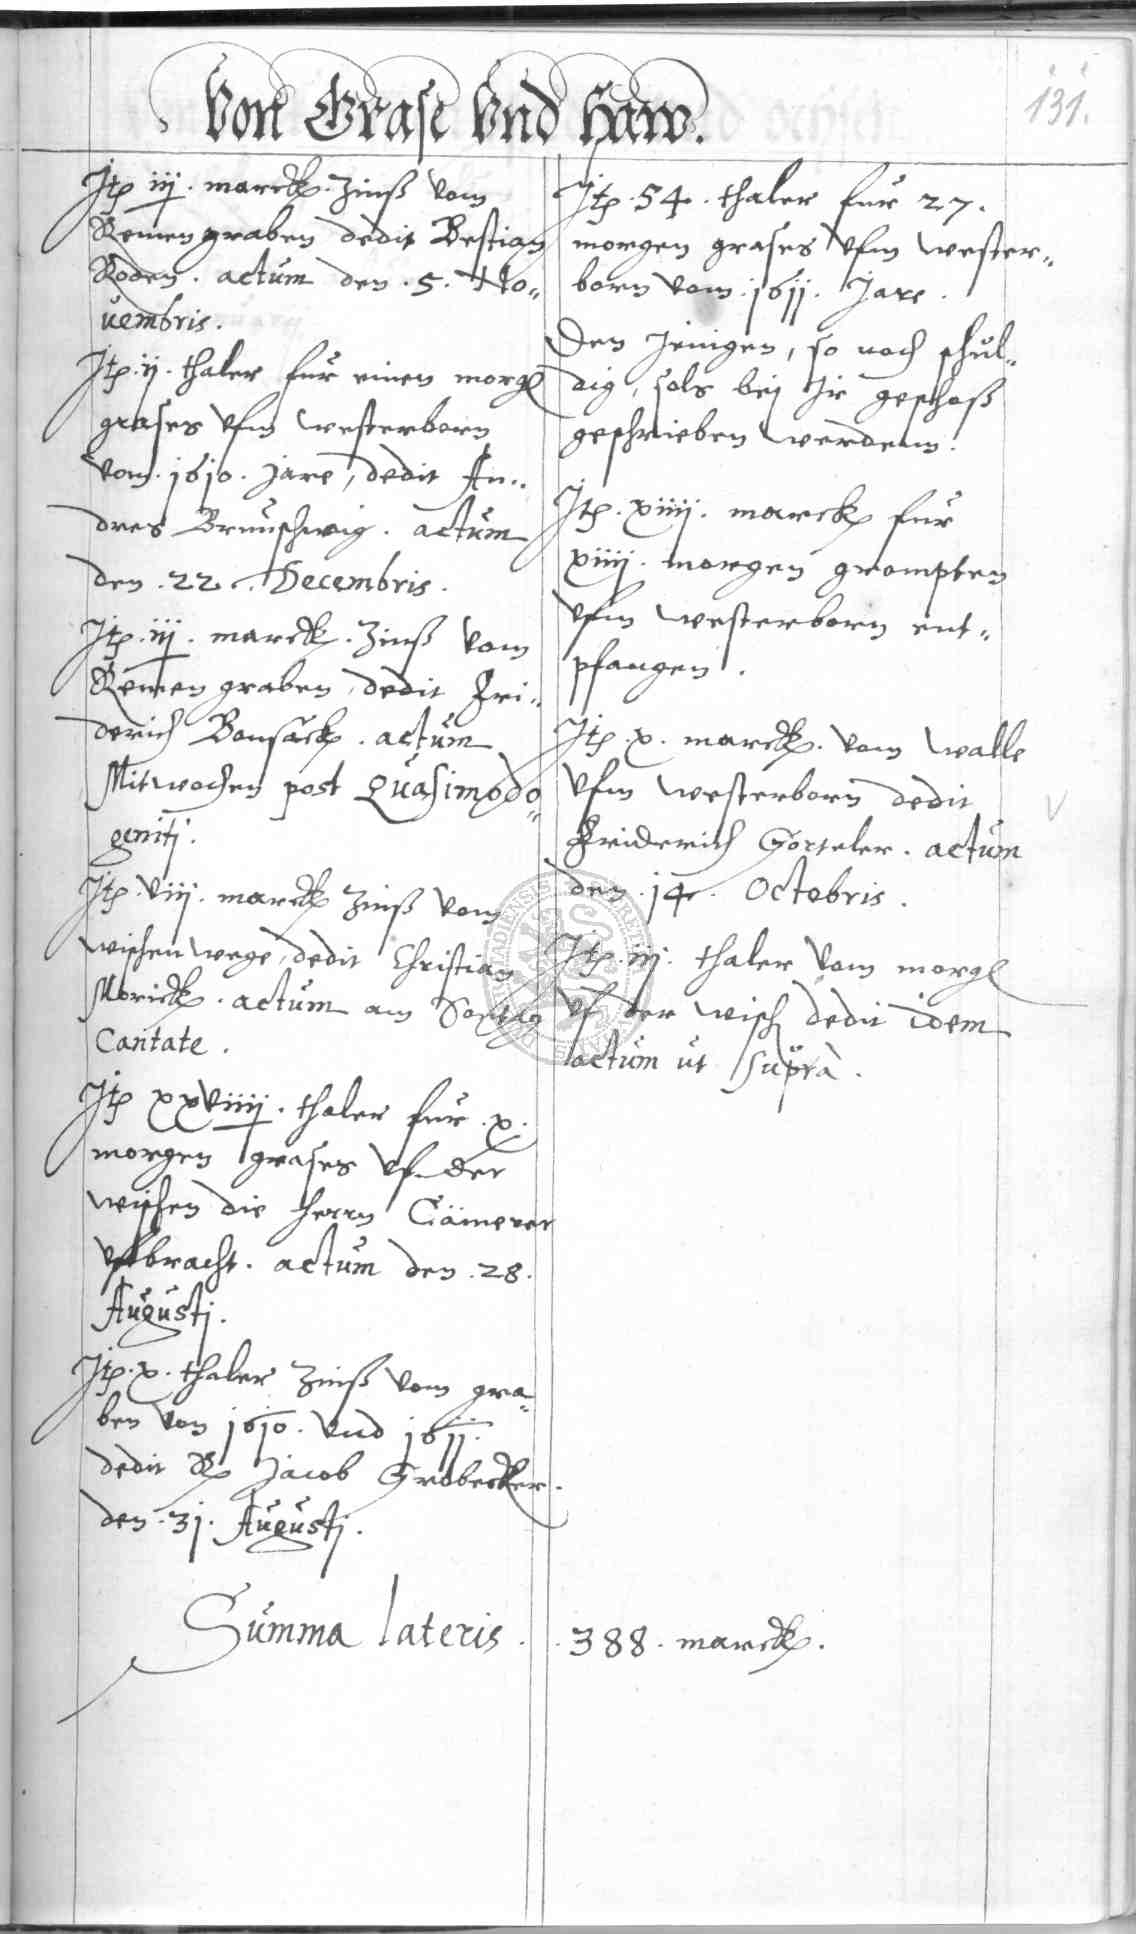 Von Grase Vnd Haw.
131.
Jtp iij. marck. Zinß vom
Remengraben dedit Bestian
Roden. actum den .5. No„
uembris.
Jtp. ij. thaler fur einen morg
grases vfm westerborn
vom. 1610. Jare, dedit An„
dres Brunschwig. actum
den .22. Decembris.
Jtp. iij. marck. Zinß vom
Remengraben, dedit Fri„
derich Bonsack. actum
Mitwochen post Quasimodo„
geniti.
Jtp. viij. marck Zinß vom
wischenwege, dedit Christian
Morick. actum am Sontag
Cantate.
Jtp xxviiij. thaler fur .x.
morgen grases vf der
wischen die herrn Cämerer
vfbracht. actum den .28.
Augustj.
Jtp. x. thaler Zinß vom gra„
ben von 1610. vnd 1611.
dedit R Jacob Grobecker.
den .31. Augustj.
Jtp. 54. thaler fur 27.
morgen grases vfm wester„
born vom .1611. Jare.
Den Jenigen, so noch schul„
dig, sols bei Jr geschoß
geschrieben werdenn.
Jtp. xiiij. marck fur
xiiij. morgen grompten
vfm westerborn ent„
pfangen.
Jtp. x. marck. vom walle
vfm westerborn dedit
Friderich Gorteler. actum
den .14. Octobris.
Jtp. iij. thaler vom morg
vf der wisch dedit idem
actum ut suprà.
Summa lateris . . 388. marck.